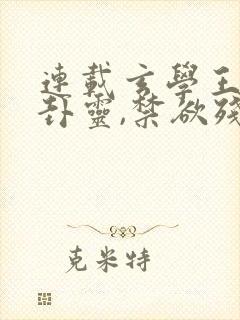 連載玄學王
卦靈,禁欲殘
克米特